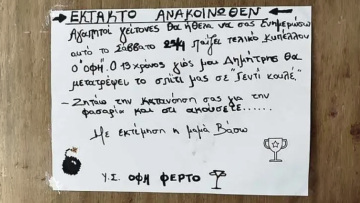 ΕΚΤΑΚΤΟ ΑΝΑΚΟΙΝΩΘΕΝ
Αγαπητοί γείτονες θα ήθελα να σας ενημερώσω
αυτό το Σάββατο 25/4 παίζει τελικό κυπέλλου
ο "ΟΦΗ". Ο 13 χρονος γιός μου Δημήτρης θα
μετατρέψει το σπίτι μας σε "Γεντί κουλέ".
- Ζητάω την κατανόηση σας για την
φασαρία και ότι ακούσετε......
Με εκτίμηση η μαμά Βάσω
Υ.Σ. ΟΦΗ ΦΕΡΤΟ